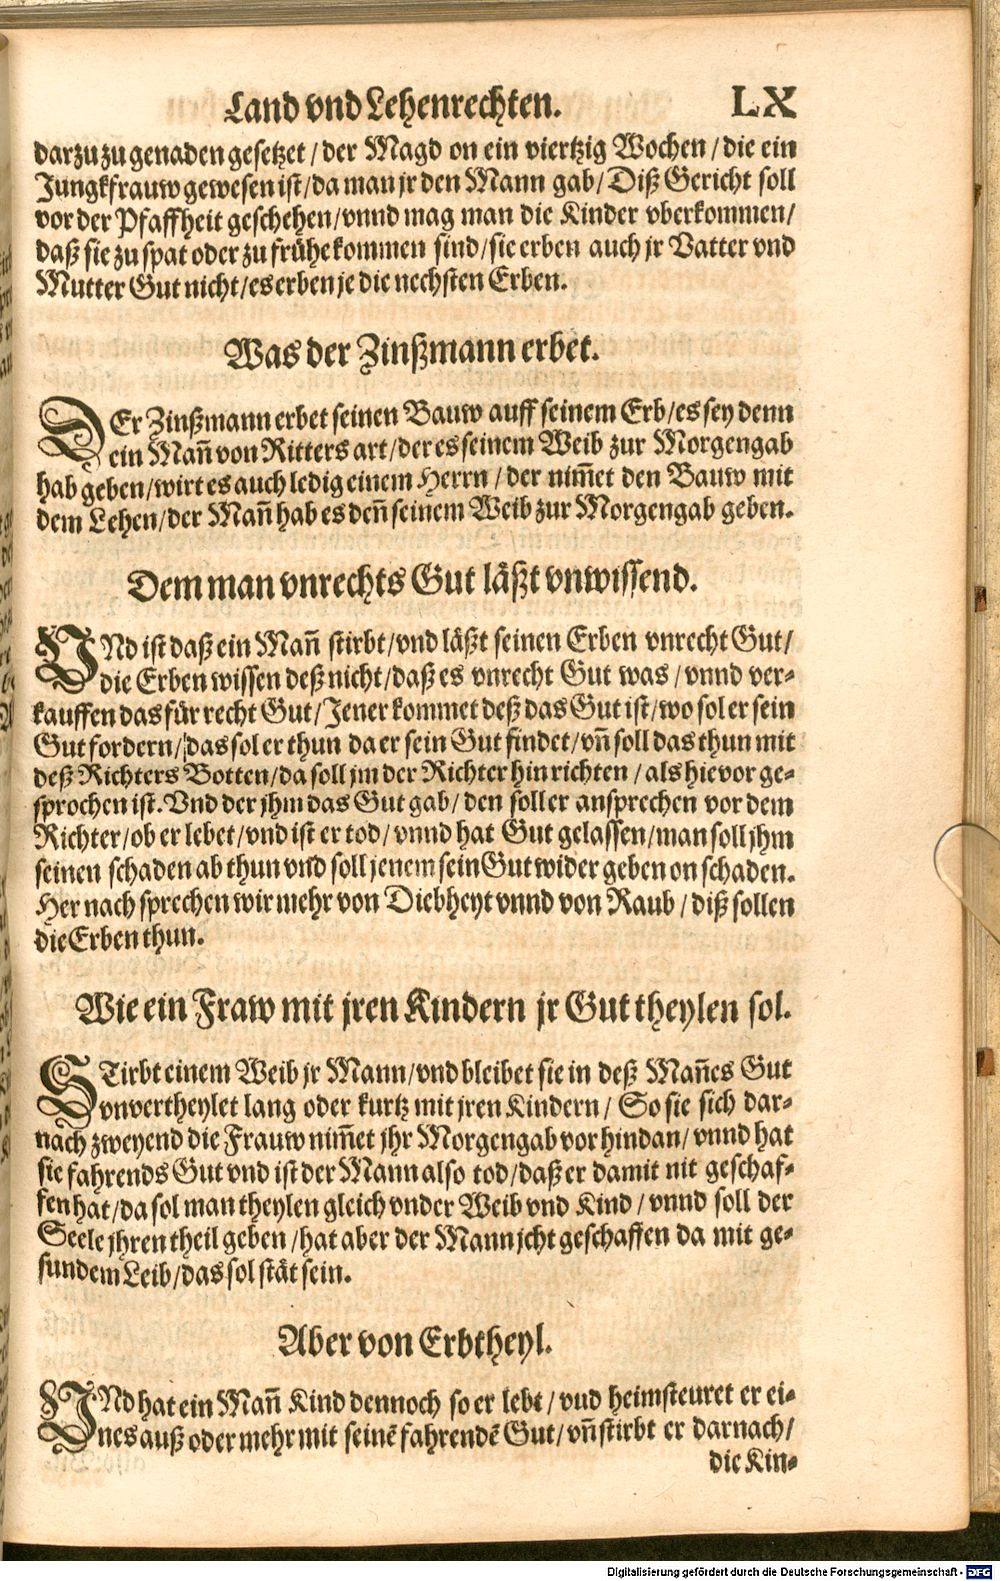 Land vnd Lehenrechten. LX
darzu zu genaden gesetzet / der Magd on ein viertzig Wochen / die ein
Jungkfrauw gewesen ist / da man jr den Mann gab / Diß Gericht soll
vor der Pfaffheit geschehen / vnnd mag man die Kinder vberkommen /
daß sie zu spat oder zu frühe kommen sind / sie erben auch jr Vatter vnd
Mutter Gut nicht / es erben je die nechsten Erben.
Was der Zinßmann erbet.
DEr Zinßmann erbet seinen Bauw auff seinem Erb / es sey denn
ein Mañ von Ritters art / der es seinem Weib zur Morgengab
hab geben / wirt es auch ledig einem Herrn / der nim̄et den Bauw mit
dem Lehen / der Mañ hab es deñ seinem Weib zur Morgengab geben.
Dem man vnrechts Gut läßt vnwissend.
VNd ist daß ein Mañ stirbt / vnd läßt seinen Erben vnrecht Gut /
die Erben wissen deß nicht / daß es vnrecht Gut was / vnnd ver-
kauffen das für recht Gut / Jener kommet deß das Gut ist / wo sol er sein
Gut fordern / das sol er thun da er sein Gut findet / vñ soll das thun mit
deß Richters Botten / da soll jm der Richter hin richten / als hievor ge-
sprochen ist. Vnd der jhm das Gut gab / den soll er ansprechen vor dem
Richter / ob er lebet / vnd ist er tod / vnnd hat Gut gelassen / man soll jhm
seinen schaden ab thun vnd soll jenem sein Gut wider geben on schaden.
Her nach sprechen wir mehr von Diebheyt vnnd von Raub / diß sollen
die Erben thun.
Wie ein Fraw mit jren Kindern jr Gut theylen sol.
STirbt einem Weib jr Mann / vnd bleibet sie in deß Mañes Gut
vnvertheylet lang oder kurtz mit jren Kindern / So sie sich dar-
nach zweyend die Frauw nim̄et jhr Morgengab vor hindan / vnnd hat
sie fahrends Gut vnd ist der Mann also tod / daß er damit nit geschaf-
fen hat / da sol man theylen gleich vnder Weib vnd Kind / vnnd soll der
Seele jhren theil geben / hat aber der Mann jcht geschaffen da mit ge-
sundem Leib / das sol stät sein.
Aber von Erbtheyl.
VNd hat ein Mañ Kind dennoch so er lebt / vnd heimsteuret er ei-
nes auß oder mehr mit seinē fahrendē Gut / vñ stirbt er darnach /
die Kin-
Digitalisierung gefördert durch die Deutsche Forschungsgemeinschaft - DFG